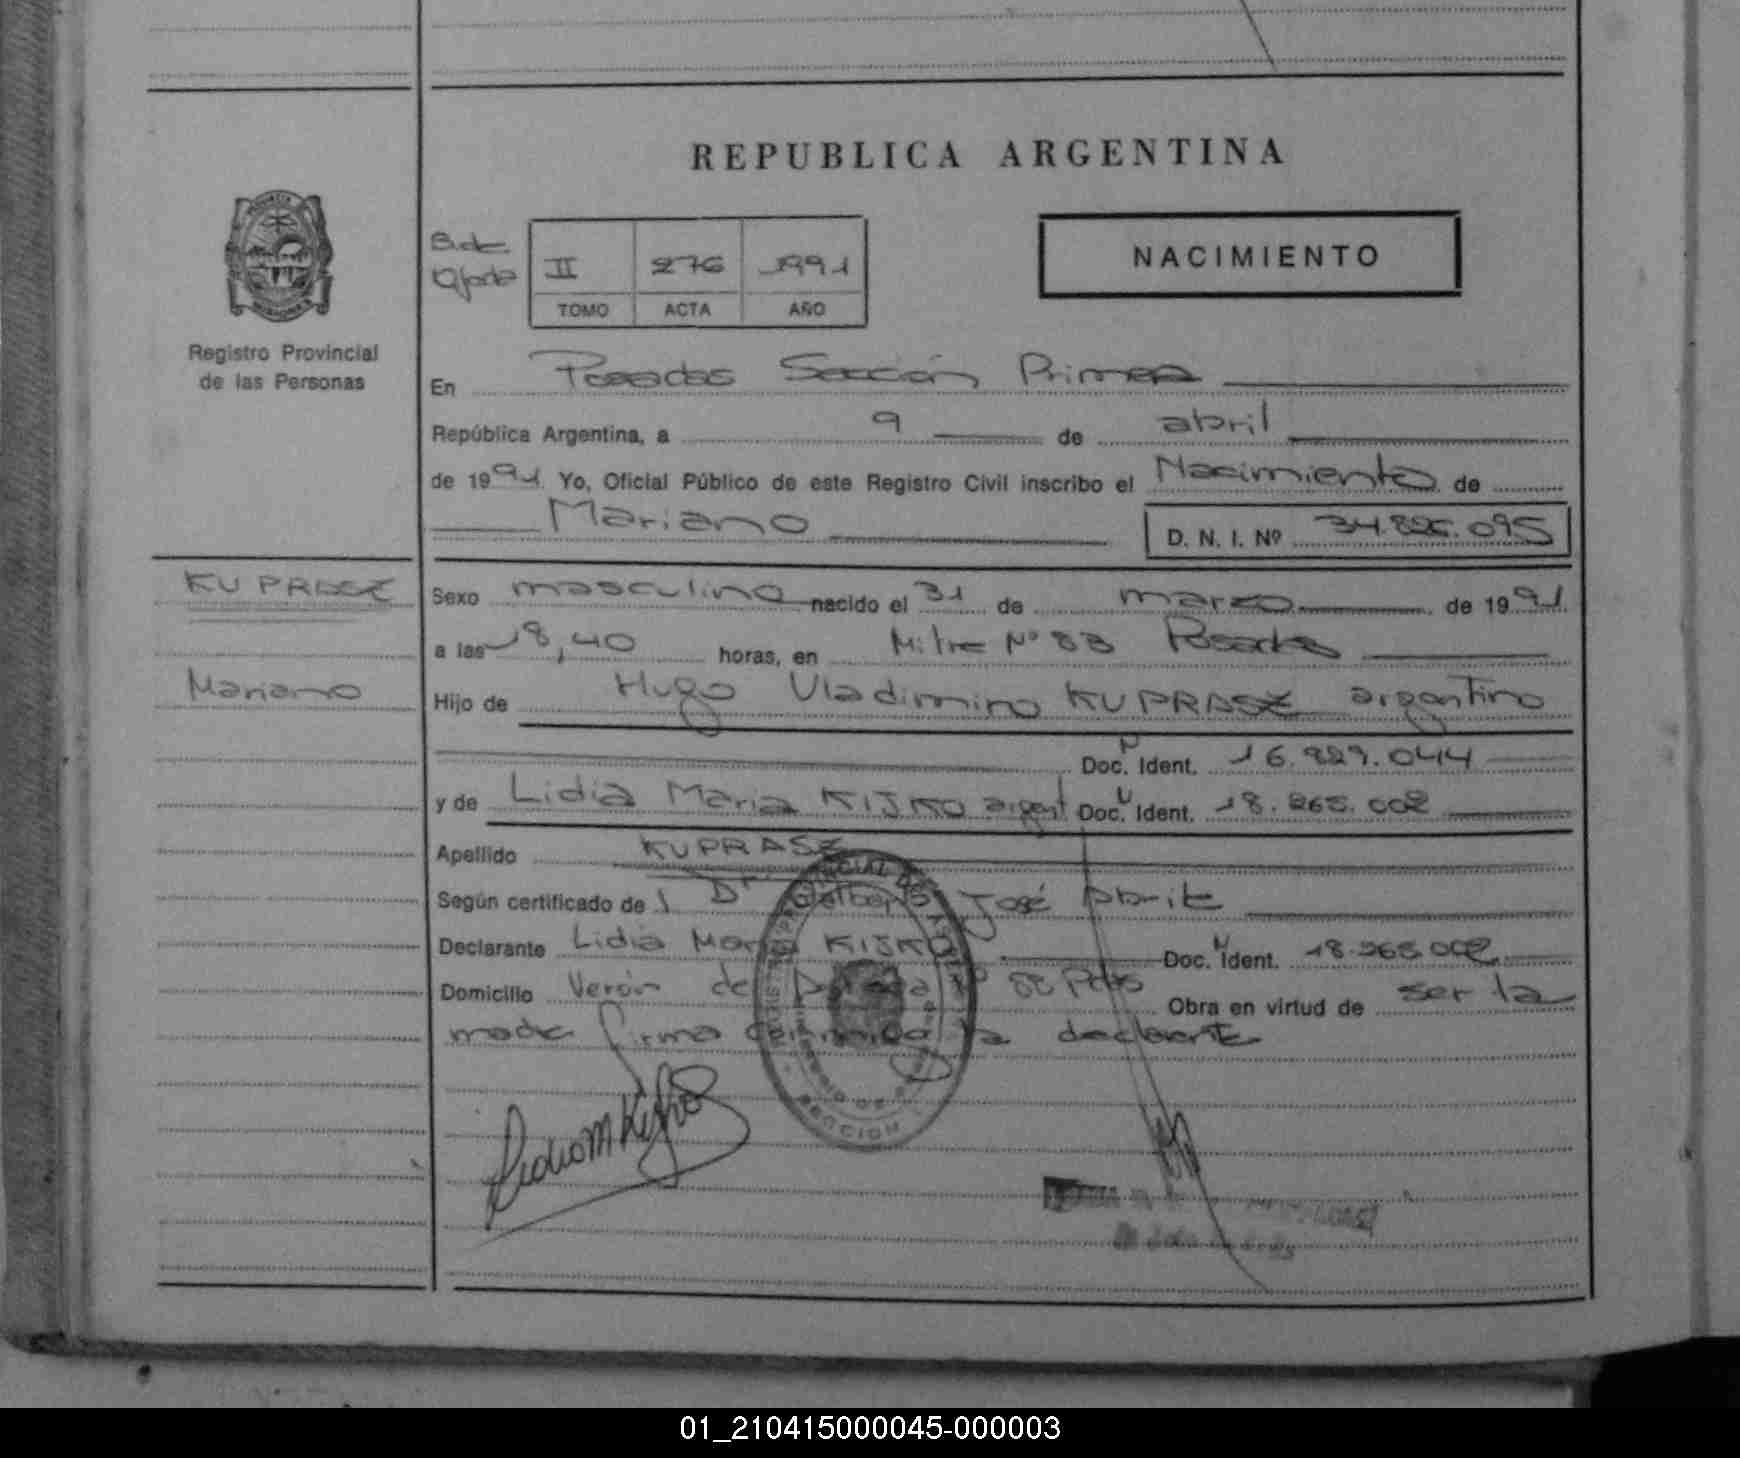 REPUBLICA ARGENTINA
NACIMIENTO
II 276 1991
TOMO ACTA AÑO
Registro Provincial
de las Personas
En Posadas Sección Primera
República Argentina, a 9 de abril
de 1991 Yo, Oficial Público de este Registro Civil inscribo el Nacimiento de
Mariano D. N. I. Nº 34.826.095
KUPRASZ
Sexo masculino nacido el 31 de marzo de 1991
a las 18,40 horas, en Mitre Nº 83 Posadas
Mariano
Hijo de Hugo Vladimiro KUPRASZ argentino
Doc. Ident. 16.829.044
y de Lidia Maria KIJKO argent Doc. Ident. 18.265.002
Apellido KUPRASZ
Según certificado de l Dr José
Declarante Lidia Maria KIJKO Doc. Ident. 18.265.002
Domicilio Verón de Nº 88 Pdas Obra en virtud de ser la
madre firma la declarante
SECCION
01_210415000045-000003